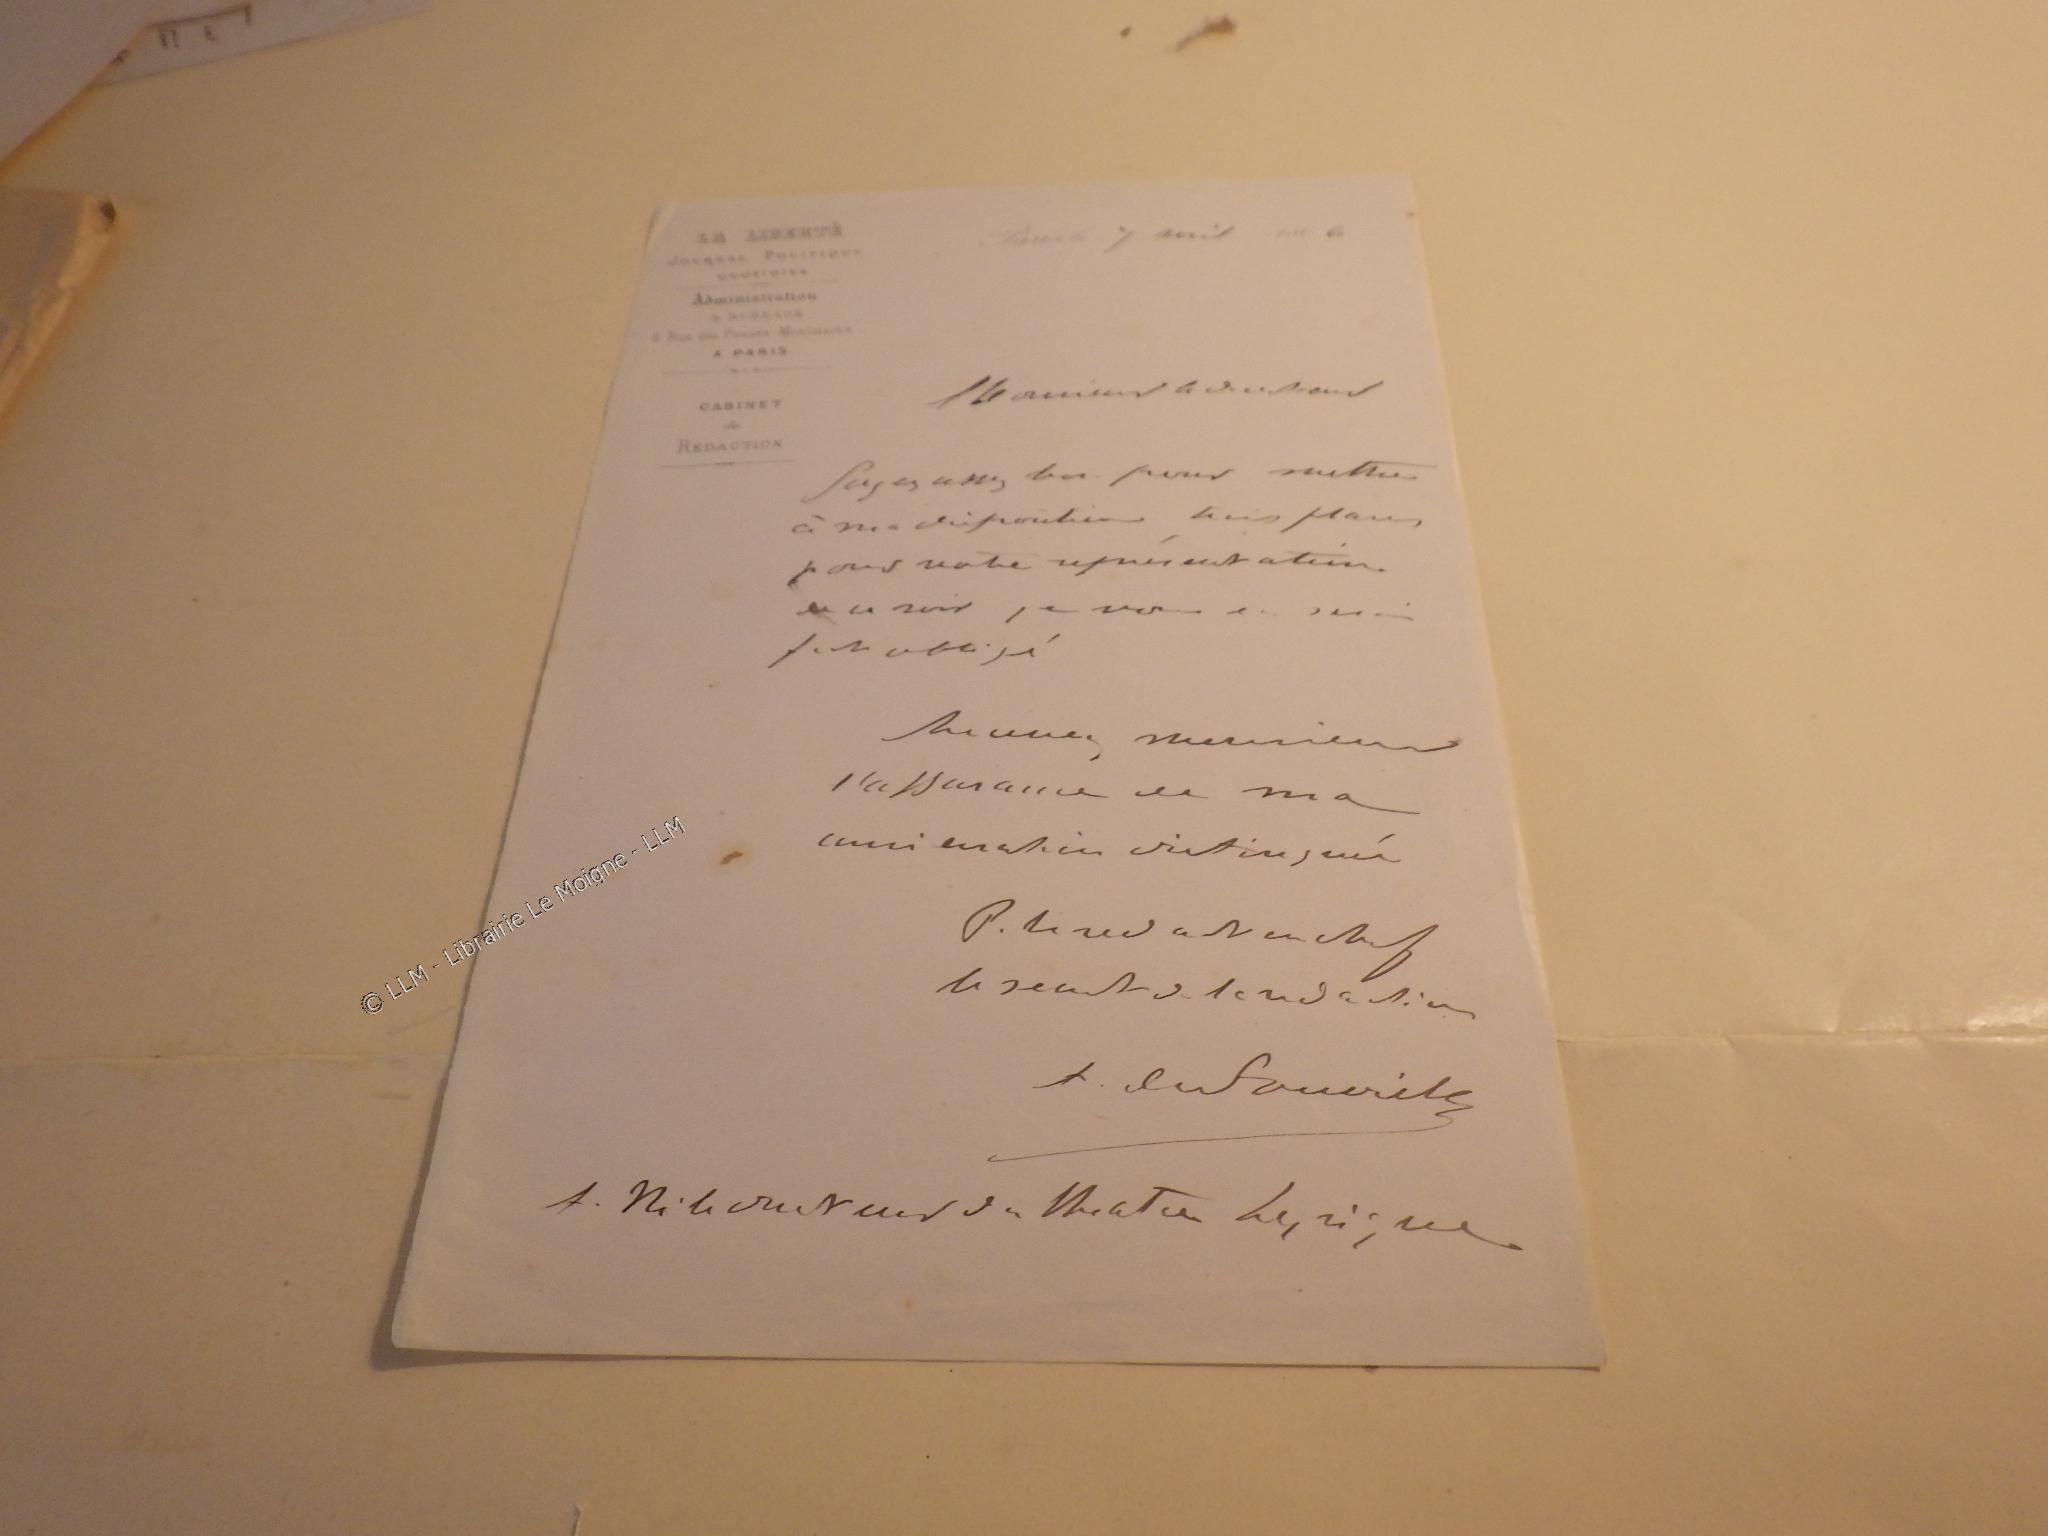 LA LIBERTÉ
JOURNAL POLITIQUE
QUOTIDIEN
Administration
& BUREAUX
Rue du Montmartre
A PARIS.
CABINET
de
REDACTION
Paris le 7 avril 186 6
Monsieur le directeur
Soyez assez bon pour mettre
à ma disposition trois places
pour votre représentation
de ce soir je vous en serai
fort obligé
Recevez monsieur
l'assurance de ma
considération distinguée
P. le redact en chef
le secret de la rédaction
A. Mr le directeur du théatre Lyrique
© LLM - Librairie Le Moigne - LLM